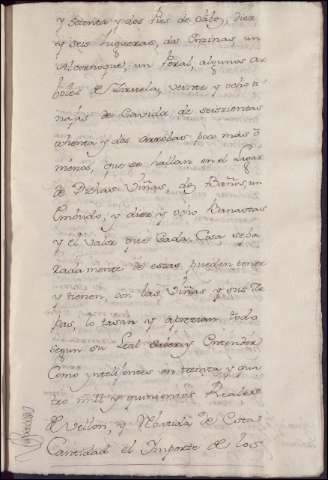 y setenta y dos Pies de Olibo, diez
y seis higueras, dos Enzinas, un
Alcornoque, un Peral, algunos Ar
boles de Ziruela, veinte y ocho ti
najas de Cavida de seiscientas
ochenta y dos arrobas poco más ó
menos, que se hallan en el Lagar
de Dichas Viñas, dos un
Embudo, y diez y ocho Banastas
y el valor que Cada Cosa sepa
radamente de estas pueden tener
y tienen, con las Viñas y sus Ze
pas, lo tasan y aprecian todo
segun su Leal saber y Entender
Como ynteligentes en treinta y qua
tro mill y quinientos Reales
de Vellon, y de esta
Cantidad el Importe de los